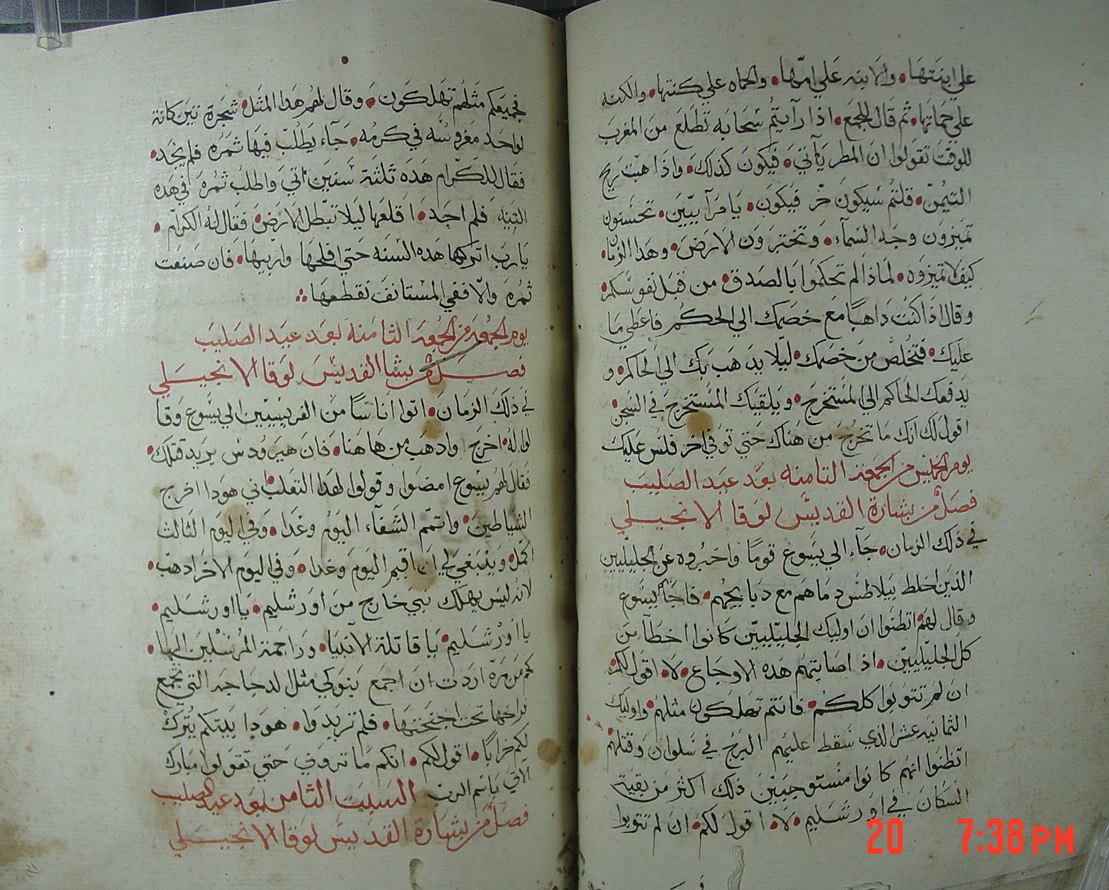 علي ابنتها والابنه علي امّها والحماه علي كنتها والكنه
علي حماتها ثم قال للجمع اذا رآيتم سَحابه تطلع من المغرب
للوقت تقولوا ان المطر يآتي فيكون كذلك واذا هبّت ريح
التيمن قلتم سَيكون حرّ فيكون يا مرآ ييّن تحسَنون
تميزون وجه السمآء وتختبرون الارض وهذا الزمان
كيف لا تميزوه لماذا لم تحكموا بالصدق من قبل نفوسكم
وقال اذا كنت داهبًا مع خصمك الي الحكم فاعطي ما
عليك فتخلص من خصمك ليّلا يدهب بك الي الحاكم و
يدفعك الحاكم الي المستخرج ويلقيك المستخرج في السجن
اقول لك انك ما تخرج من هناك حتي توفي اخر فلس عليك
يوم الخميس من الجمعه التامنه بعد عيد الصليب
فصل من بشارة القديس لوقا الانجيلي
في ذلك الزمان جآء الي يسوع قومًا واخبروه عن الجليليين
الذين خلط بيلاطس دماهم مع دبايحهم فاجاب يسوع
وقال لهم اتظنوا ان اوليك الجليليين كانوا اخطآ من
كل الجليليين اذ اصابتهم هذه الاوجاع لا اقول لكم
ان لم تتوبوا كلكم فانتم تهلكون مثلهم واوليك
الثمانيه عشر الذي سقط عليهم البرج في سلوان وقتلهم
اتظنوا انهم كانوا مستوجبين ذلك اكثر من بقية
السكان في اورشليم لا اقول لكم ان لم تتوبوا
فجميعكم مثلهم تهلكون وقال لهم هدا المثل شجرة تين كانة
لواحد مغروسَه في كرمه جآء يطلب فيها ثمره فلم يجد
فقال للكرام هده ثلثة سنين اتي واطلب ثمرة في هده
التينه فلم اجد اقلعها ليلا تبطل الارض فقال له الكرام
يارب اتركها هده السنه حتي افلحها واربّها فان صنعت
ثمره والا ففي المستانف نقطعها
يوم الجمعه من الجمعه الثامنه بعد عيد الصليب
فصل من بشارة القديس لوقا الانجيلي
في ذلك الزمان اتوا اناسًا من الفريسيين الي يسوع وقا
لوا له اخرج وادهب من هاهنا فان هيرودس يريد قتلك
فقال لهم يسوع امضوا وقولوا لهدا الثعلب اني هودا اخرج
الشياطين واتمّم الشفآء اليوم وغدا وفي اليوم الثالث
اكمل وينبغي لي ان اقيم اليوم وغدا وفي اليوم الاخر ادهب
لانه ليس يهلك نبي خارج من اورشليم يا اورشليم
يا اورشليم يا قاتلة الانبيا وراجمة المرسلين اليها
كم من مرة اردت ان اجمع بنوكي مثل الدجاجه التي تجمع
فراخها تحت اجنحتها فلم تريدوا هودا بيتكم يترك
لكم خرابًا اقول لكم انكم ما تروني حتي تقولوا مبارك
الآتي باسم الرب السبت الثامن بعد عيد الصليب
فصل من بشارة القديس لوقا الانجيلي
20 7:38 PM